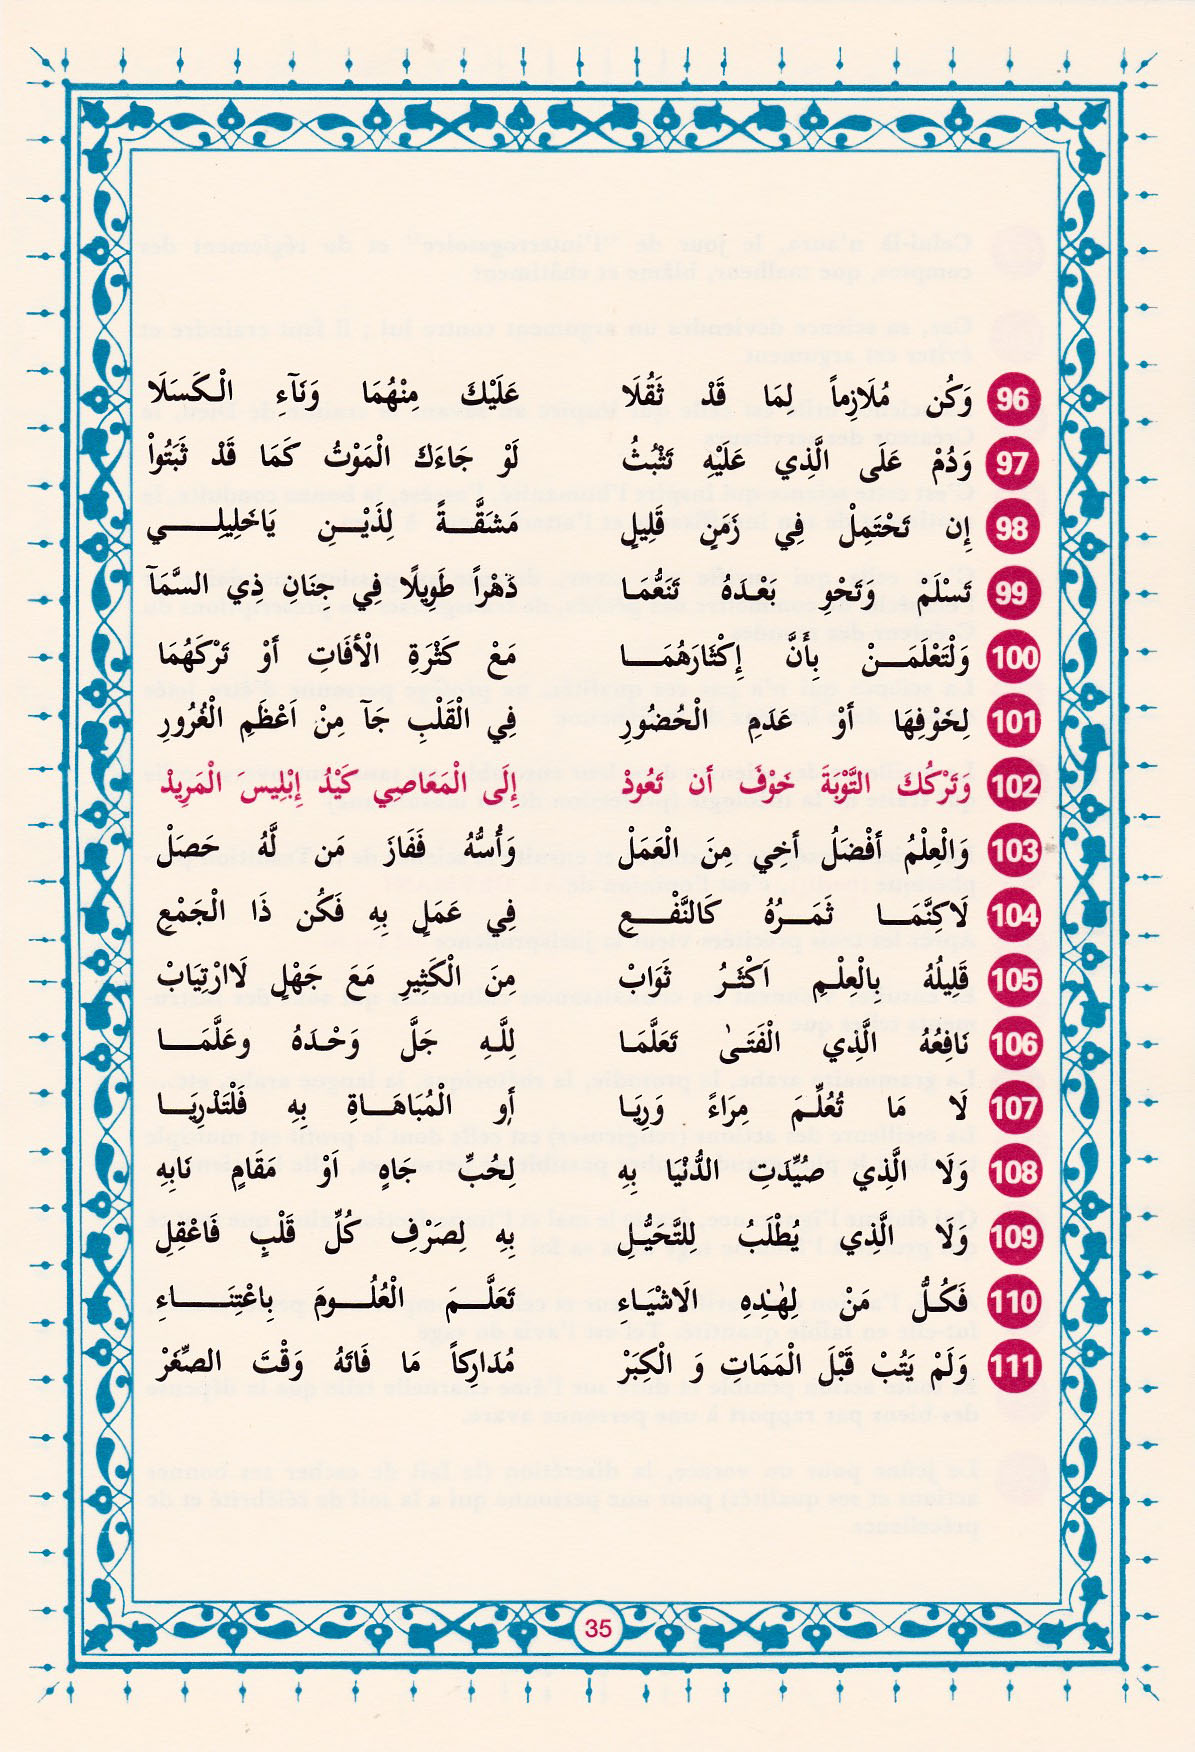 96 وَكُن مُلَازِماً لِمَا قَدْ ثَقُلَا عَلَيْكَ مِنْهُمَا وَنَآء الْكَسَلَا
97 وَدُمْ عَلَى الَّذِي عَلَيْهِ تَثْبُتُ لَوْ جَاءَكَ الْمَوْتُ كَمَا قَدْ ثَبَتُواْ
98 إِن تَحْتَمِلْ فِي زَمَنٍ قَلِيلٍ مَشَقَّةً لِذَيْنِ يَاخَلِيلِي
99 تَسْلَمْ وَتَحْوِ بَعْدَهُ تَنَعُّمَا دَهْراً طَوِيلًا فِي جِنَان ذِي السَّمَآ
100 وَلْتَعْلَمَنْ بِأَنَّ إِكْثَارَهُمَا مَعْ كَثْرَةِ الْأفَاتِ أَوْ تَرْكَهُمَا
101 لِخَوْفِهَا أَوْ عَدَمِ الْحُضُورِ فِي الْقَلْبِ جَآ مِنْ اَعْظَمِ الْغُرُورِ
102 وَتَرْكُكَ التَّوْبَةَ خَوْفَ أن تَعُودْ إِلَى الْمَعَاصِي كَيْدُ إِبْلِيسَ الْمَرِيدْ
103 وَالْعِلْمُ أَفْضَلُ أَخِي مِنَ الْعَمَلْ وَأُسُّهُ فَفَازَ مَن لَّهُ حَصَلْ
104 لَاكِنَّمَا ثَمَرُهُ كَالنَّفْعِ فِي عَمَلٍ بِهِ فَكُن ذَا الْجَمْعِ
105 قَلِيلُهُ بِالْعِلْمِ اَكْثَرُ ثَوَابْ مِنَ الْكَثِيرِ مَعَ جَهْلٍ لَاارْتِيَابْ
106 نَافِعُهُ الَّذِي الْفَتَىٰ تَعَلَّمَا لِلَّهِ جَلَّ وَحْدَهُ وعَلَّمَا
107 لَا مَا تُعُلِّمَ مِرَاءً وَرِيَا أَوِ الْمُبَاهَاةِ بِهِ فَلْتَدْرِيَا
108 وَلَا الَّذِي صُيِّدَتِ الدُّنْيَا بِهِ لِحُبِّ جَاهٍ اَوْ مَقَامٍ نَابِهِ
109 وَلَا الَّذِي يُطْلَبُ لِلتَّحَيُّلِ بِهِ لِصَرْفِ كُلِّ قَلْبٍ فَاعْقِلِ
110 فَكُلُّ مَنْ لِهٰذِهِ الَاشْيَاءِ تَعَلَّمَ الْعُلُومَ بِاعْتِنَاءِ
111 وَلَمْ يَتُبْ قَبْلَ الْمَمَاتِ وَ الْكِبَرْ مُدَارِكاً مَا فَاتَهُ وَقْتَ الصِّغَرْ
35